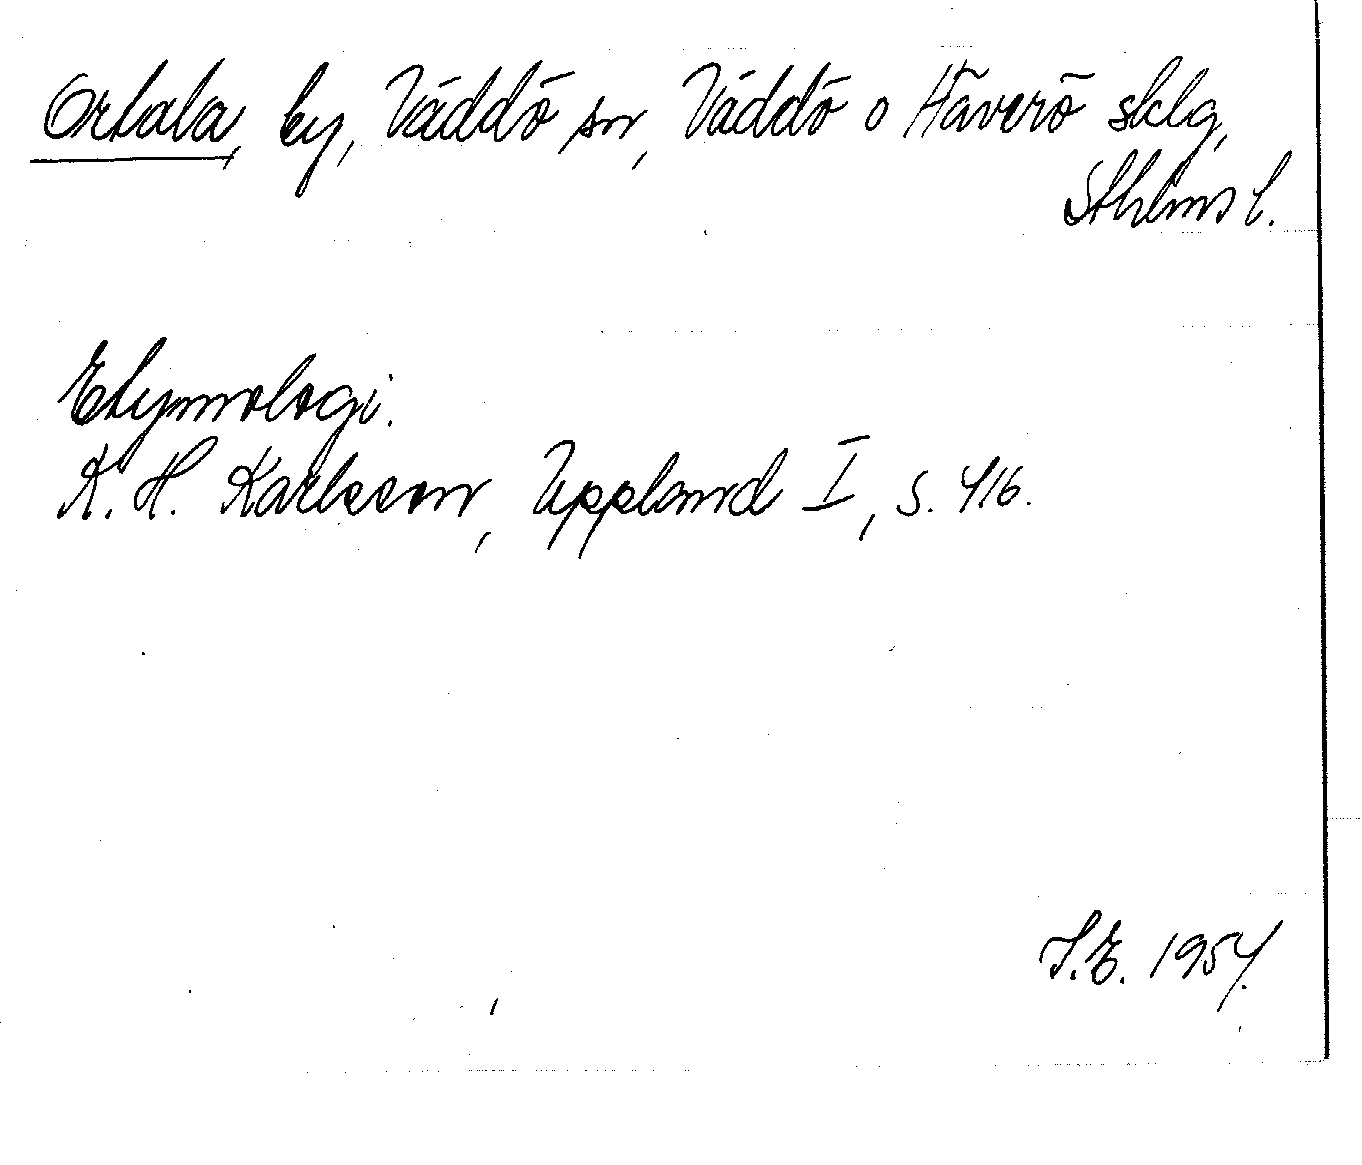 Ortala, by, Väddö sn, Väddö o Häverö sklg,
Sthlms l.
Etymologi.
K. H. Karlsson, Uppland I, s. 416.
I.E. 1954.